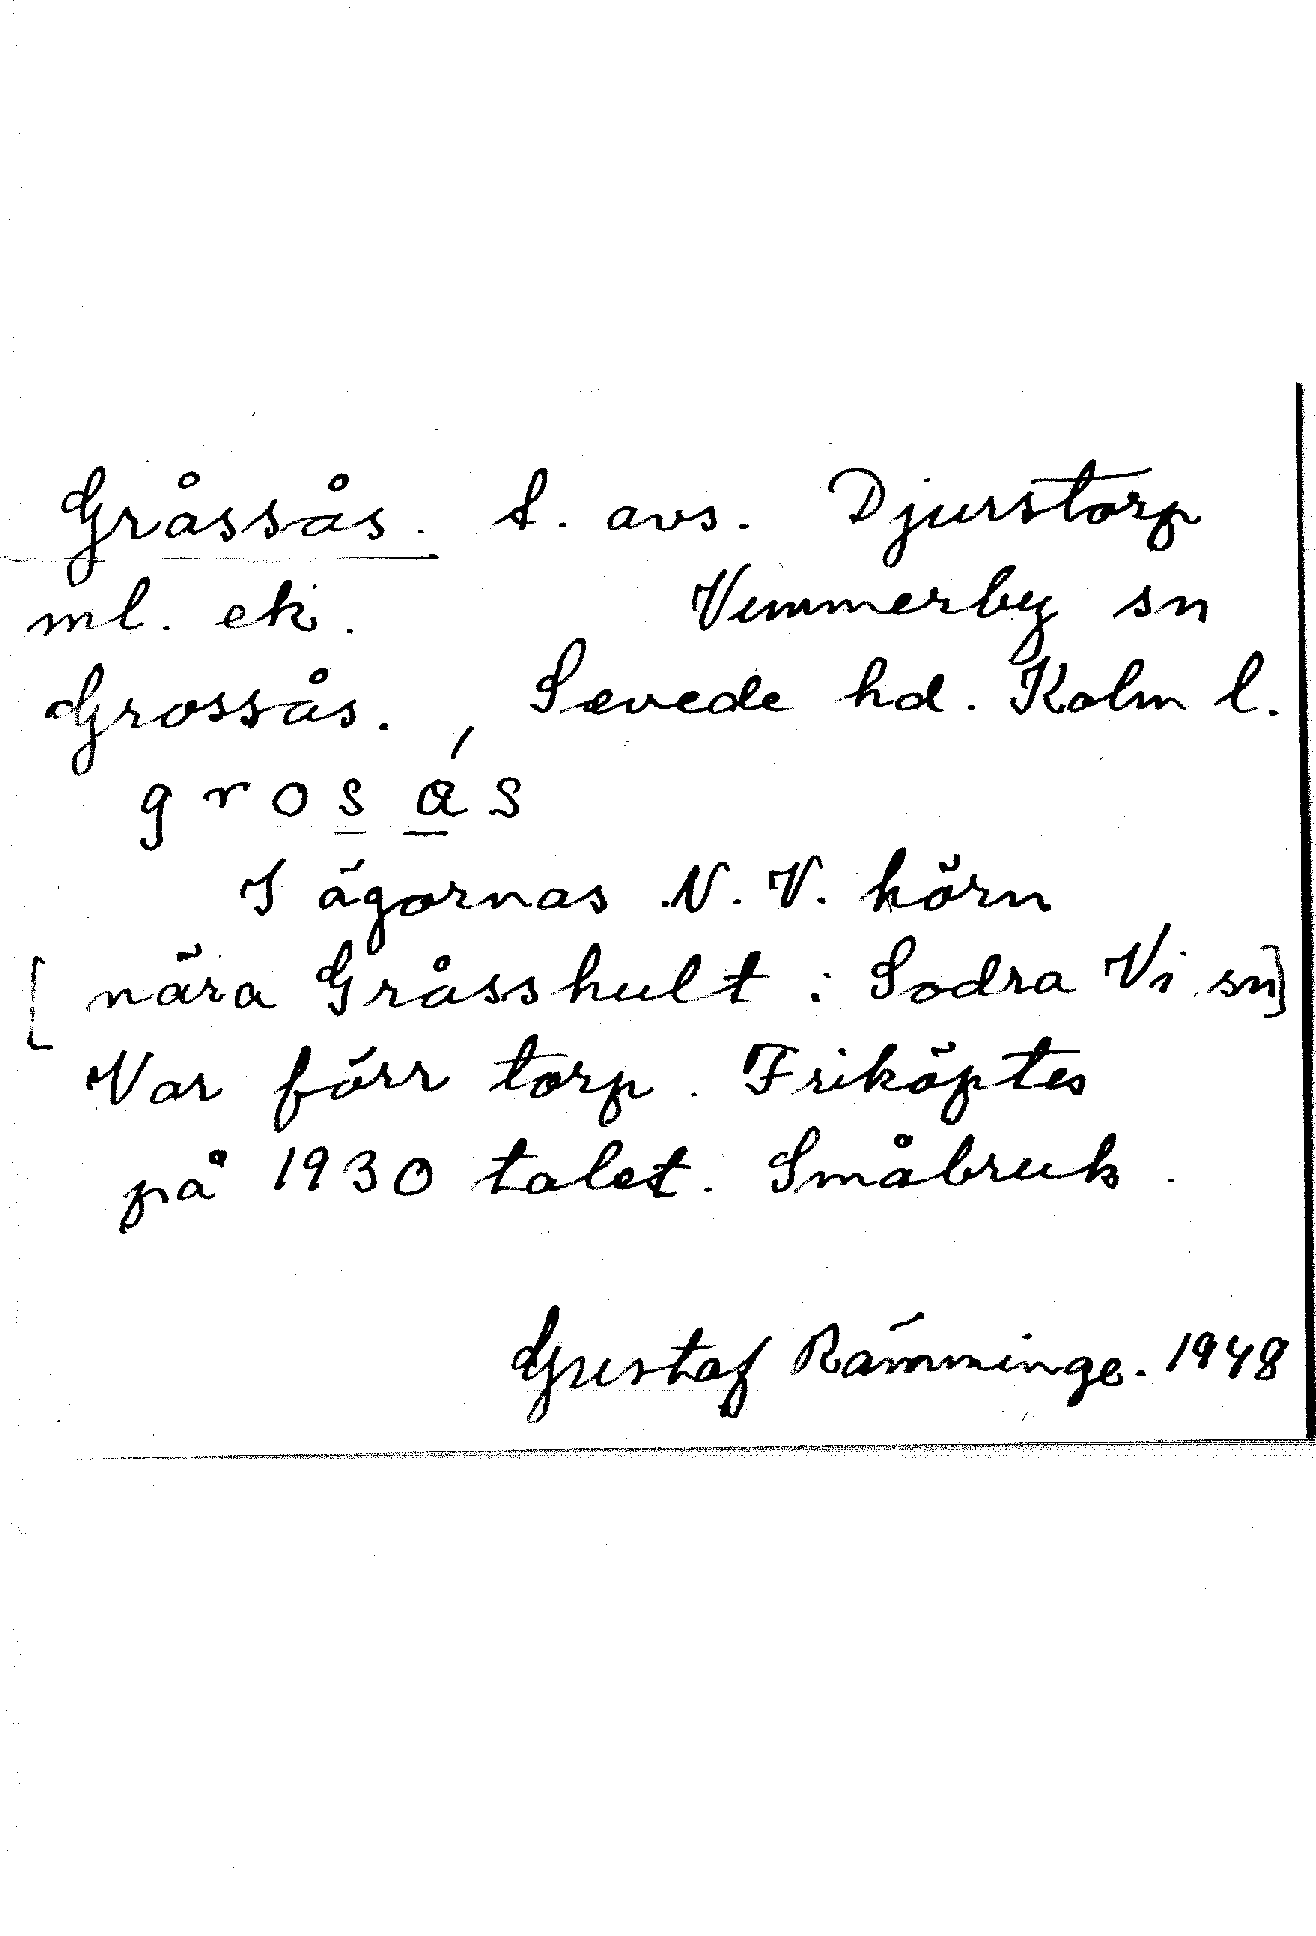 Gråssås. t. avs. Djurstorp
ml. ek. Vimmerby sn
Grossås. , Sevede hd. Kalm l.
g r o s á s
I ägornas N. V. hörn
[nära Gråsshult i Södra Vi sn]
Var förr torp. Friköptes
på 1930 talet. Småbruk.
Gustaf Rämminge. 1948